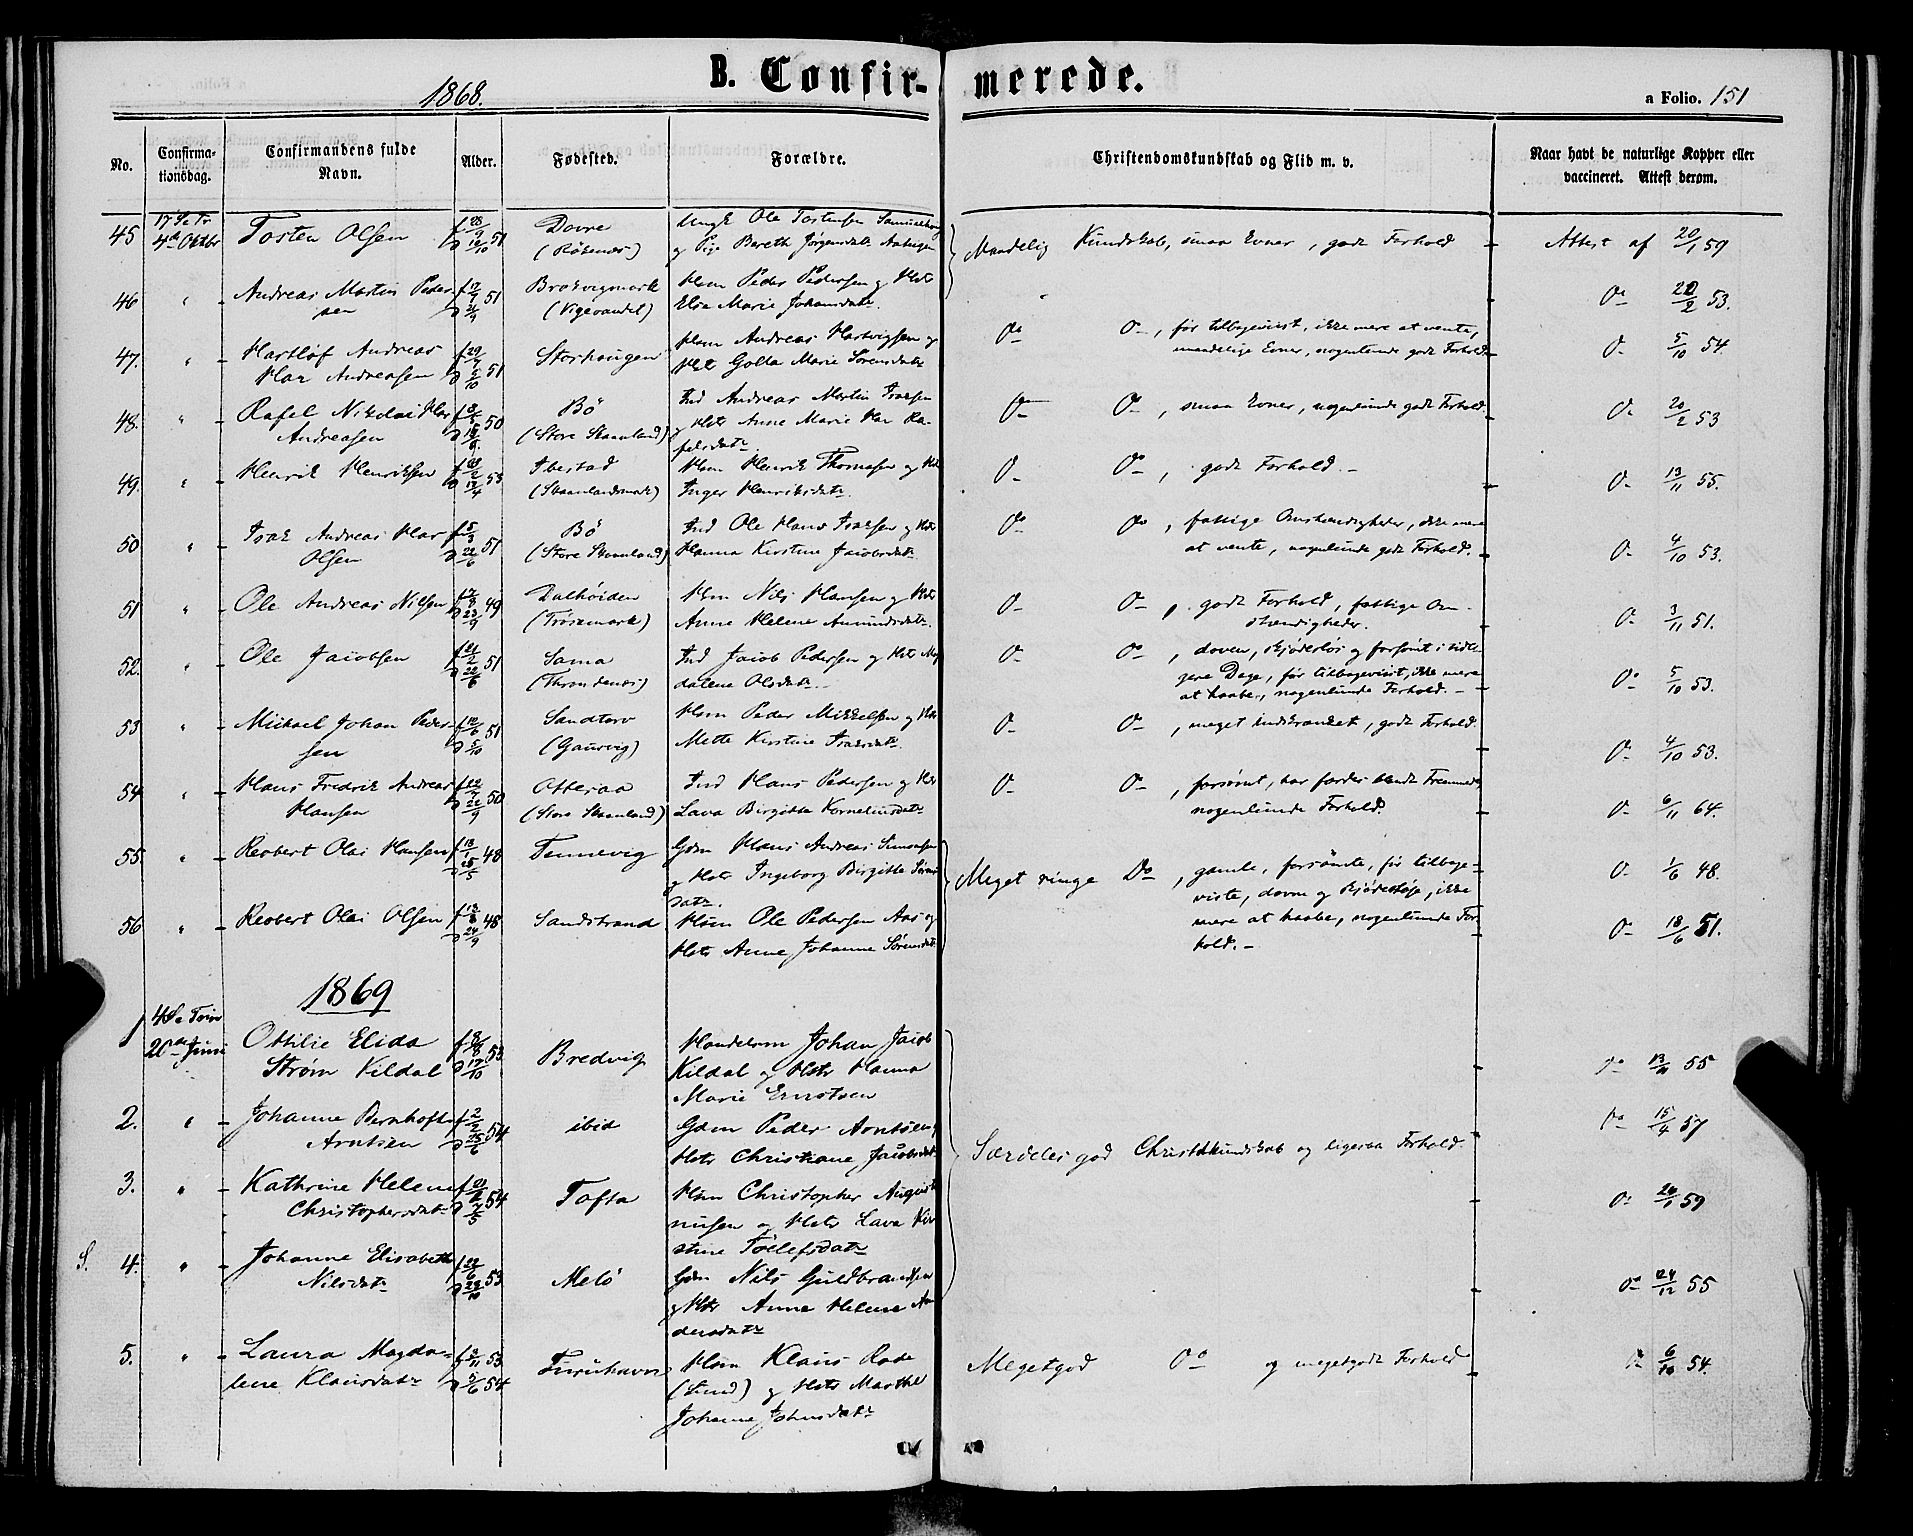 B. Confir-merede.
1868.
a Folio. 151
No.
Confirma-tionsdag.
Confirmandens fulde Navn.
Alder.
Fødested.
Forældre.
Christendomskundskab og Flid m. v.
Naar havt de naturlige Kopper eller vaccineret. Attest derom.
45 4de Oktbr Tosten Olsen 51 Dovre Ungk Ole Tostensen
og Pige Bereth Jørgensdatr
Maadelig Kundskab, smaa Evner, godt Forhold Attest af 20/1 59
46 " Andreas Martin Peder-sen 51 (Vigevandet) Hsm Peder Pedersen og Hstr
Elsa Marie Johansdatr.
Do 53.
47. " Hartløf Andreas
Har Andreasen 51 Storhaugen Hsm Andreas Hartvigsen og
Hst Golla Marie Sørensdatr
Do Do, før tilbageviist, ikke mere at vente,
maadelige Evner, nogenlunde godt Forhold Do 5/10 54.
48. " Rafel Nikolai Har
Andreasen 50 Bø
(Store Skaanland) Ind Andreas Martin Isaksen
og Hstr Anne Marie Har Ra-
felsdatr
Do Do, smaa Evner, nogenlunde godt Forhold. Do 20/2 53
49. " Henrik Henriksen 53 Ibestad
(Skaanlandsmark) Hsm Henrik Thomasen og Hstr
Inger Henriksdatr.
Do Do, godt Forhold. Do 13/11 55.
50 " Isak Andreas Har
Olsen 51 Bø
(Store Skaanland) Ind Ole Hans Isaksen og Hstr
Hanna Kirstine Jacobsdatr
Do Do, fattige Omstændigheder, ikke mere
at vente, nogenlunde godt Forhold. Do 4/10 53.
51 " Ole Andreas Nilsen 49 Dalhøiden Hsm Nils Hansen og Hstr
Anne Helene Amundsdatr.
Do Do, godt Forhold, fattige Om-
stændigheder. Do 3/11 51.
52. " Ole Jacobsen 51 Sama
(Throndenes) Ind Jacob Pedersen og Hstr Mag
dalene Olsdatr.
Do Do, doven, skjødesløs og forsømt i tidli
gere Dage, før tilbageviist, ikke mere
at haabe, nogenlunde Forhold. Do 5/10 53.
53 " Mickael Johan Peder-
sen 51 Sandtorv
(Gausvig) Hsm Peder Mikkelsen og Hstr
Mette Kirstine Isaksdatr.
Do Do, meget indskrænket, godt Forhold. Do 4/10 53.
54 " Hans Fredrik Andreas
Hansen 50 Otteraa
(Store Skaanland) Ind Hans Pedersen og Hstr
Lava Birgitte Korneliusdatr
Do Do, forsømt, har færdes blandt Fremmede,
nogenlunde Forhold. Do 6/11 64.
55 " Reobert Olai Hansen 48 Tennevig Gdm Hans Andreas Simonsen
og Hstr Ingeborg Birgitte Sørens
datr.
Meget ringe Do, gamle, forsømte, før tilbage-
viste, dovne og skjødesløse, ikke
mere at haabe, nogenlunde For
hold. Do 1/6 48.
56 " Reobert Olai Olsen 48 Sandstrand Hsm Ole Pedersen Aas og
Hstr Anne Johanne Sørensdatr
Do 18/6 51.
1869
1 4 S. e. Trin
20de Juni Ottilie Elida
Strøm Kildal 53 Bredvig Handelsm Johan Jacob
Kildal og Hstr Hanna
Marie Erntsen
Do 55
2. " Johanne Bernhoft
Arntsen 54 ibid Gdm Peder Arntsen og
Hstr Christiane Jacobsdatr
Særdeles god Christdkundskab og ligesaa Forhold. Do 15/4 57
3. " Kathrine Helene
Christophersdatr 54 Tofta Hsm Christopher August
nusen og Hstr Lava Kir
stine Toelefsdatr
Do 59
S. 4. " Johanne Elisabeth
Nilsdatr 53 Melø Gdm Nils Guldbrandsen
og Hstr Anne Helene An
dersdatr
Do 24/12 55
5. " Laura Magda-
lene Klausdatr 53 54 Furuhavn Hsm Klaus Rode
(Lund) og Hstr Marthe
Johanne Johnsdatr
Megetgod Do og megetgodt Forhold Do 6/10 54.